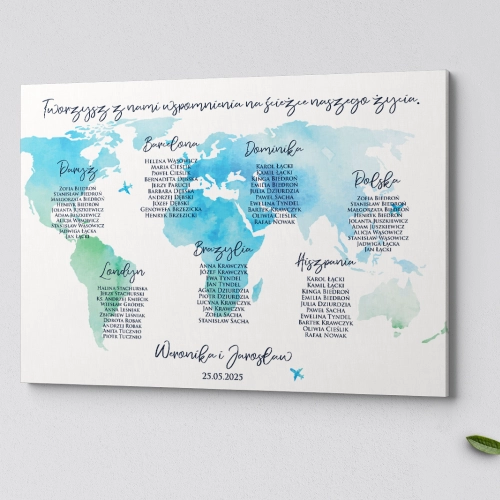 Tworzysz z nami wspomnienia na ścieżce naszego życia.
Barcelona
Helena Wąsowicz
Maria Cieślik
Paweł Cieślik
Bernadeta Dębski
Jerzy Paruch
Barbara Dębska
Andrzej Dębski
Józef Dębski
Genowefa Brzezicki
Henryk Brzezicki
Dominika
Karol Łącki
Kamil Łącki
Kinga Biedroń
Emilia Biedroń
Julia Dziurdzia
Paweł Sacha
Ewelina Tyndel
Bartek Krawczyk
Oliwia Cieślik
Rafał Nowak
Paryż
Zofia Biedroń
Stanisław Biedroń
Małgorzata Biedroń
Henryk Biedroń
Jolanta Juszkiewicz
Adam Juszkiewicz
Alicja Wąsowicz
Stanisław Wąsowicz
Jadwiga Łącka
Jan Łącki
Polska
Zofia Biedroń
Stanisław Biedroń
Małgorzata Biedroń
Henryk Biedroń
Jolanta Juszkiewicz
Adam Juszkiewicz
Alicja Wąsowicz
Stanisław Wąsowicz
Jadwiga Łącka
Jan Łącki
Brazylia
Anna Krawczyk
Józef Krawczyk
Iwa Tyndel
Jan Tyndel
Agata Dziurdzia
Piotr Dziurdzia
Lucyna Krawczyk
Jan Krawczyk
Zofia Sacha
Stanisław Sacha
Londyn
Halina Stachurska
Jerzy Stachurski
Ks. Andrzej Kmiecik
Wiesław Grodek
Anna Leśniak
Zbigniew Leśniak
Dorota Robak
Andrzej Robak
Anita Tucznio
Piotr Tucznio
Hiszpania
Karol Łącki
Kamil Łącki
Kinga Biedroń
Emilia Biedroń
Julia Dziurdzia
Paweł Sacha
Ewelina Tyndel
Bartek Krawczyk
Oliwia Cieślik
Rafał Nowak
Weronika i Jarosław
25.05.2025